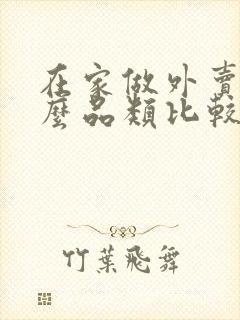 在家做外賣
麼品類比較
竹葉飛舞